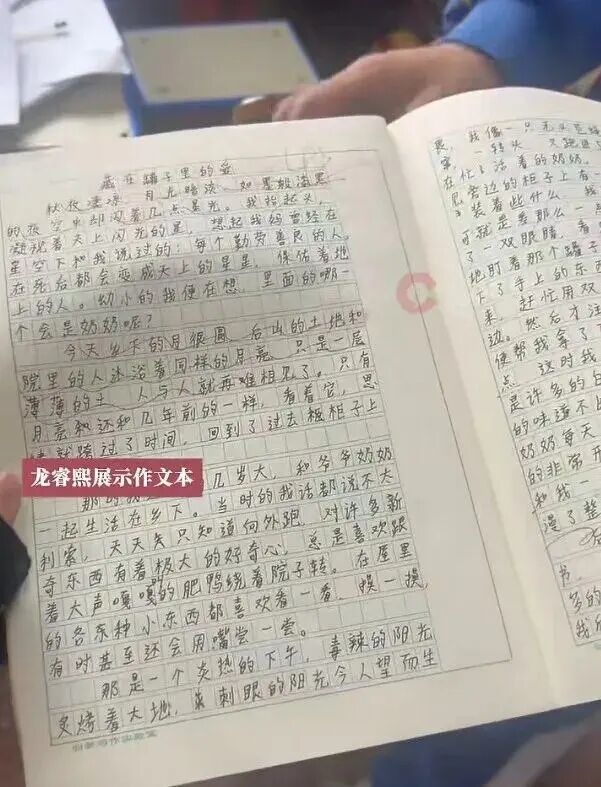 藏在罐子里的爱
秋夜漆凉，月光暗淡、如墨般漆黑
的夜空中却闪着几点星光。我抬起头，
凝视着天上闪光的星，想起我妈曾经在
星空下和我说过的：每个勤劳善良的人
在死后都会变成天上的星星，保佑着地
上的人。幼小的我便在想，里面的哪一
个会是奶奶呢？
今天乡下的月很圆，后山的土地和
院里的人沐浴着同样的月亮，只是一层
薄薄的土，人与人就再难相见了。只有
月亮知还和几年前的一样，看着它，思
就跨过了时间，回到了过去板柜子上
龙睿熙展示作文本
那时我
几岁大，和爷爷奶奶
一起生活在乡下。当时的我话都说不大
利索，天天只知道向外跑，对许多新
奇东西有着极大的好奇心，总是喜欢跟
着大声嘎嘎的肥鸭绕着院子转。在屋里
的各东种小东西都喜欢看一看，摸一摸，
有时甚至还会用嘴尝一尝。
那是一个炎热的下午，毒辣的阳光
炙烤着大地，刺眼的阳光令人望而生
畏，我像一只无头苍蝇
一转头，又跑进
在忙活着的奶奶。
旁边的柜子上有一
装着些什么，我
可就是差那么一点
了一双眼睛，看
地盯着那个罐子
下了手上的东西
来，赶忙用双
边。然后才注
便帮我拿了下
点，这时我
是许多的白
的味道不比
奶奶每天
的非常开
和我一
漫了整
书，
多的
我